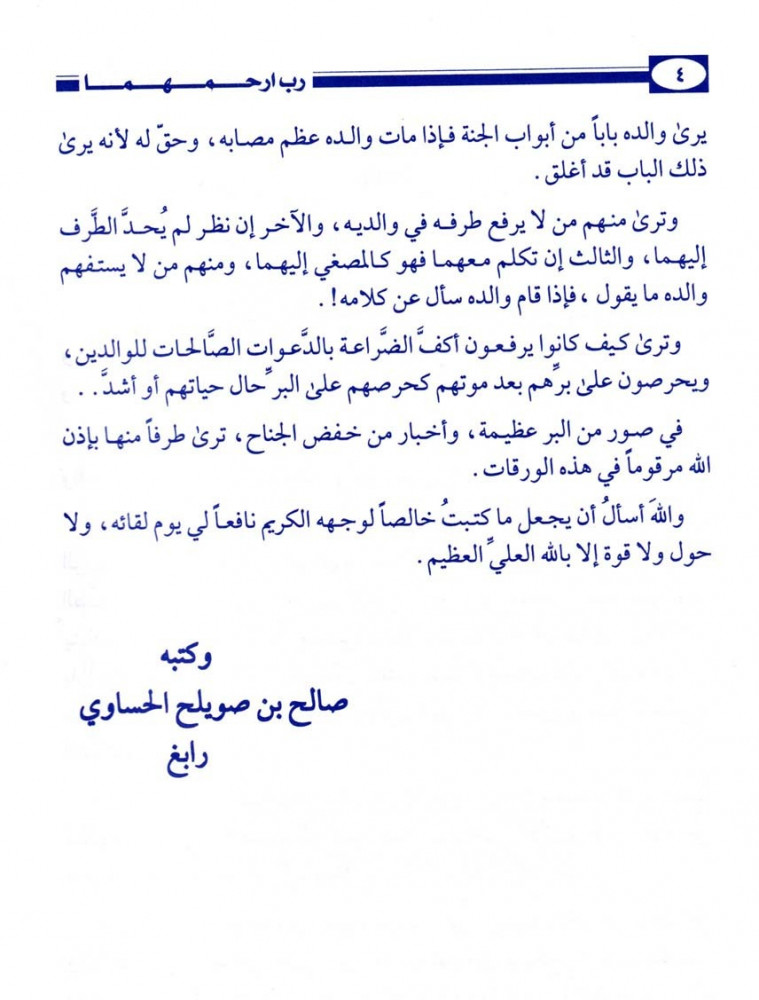 ٤
رب ارحمهما
يرىٰ والده باباً من أبواب الجنة فإذا مات والده عظم مصابه، وحقّ له لأنه يرىٰ
ذلك الباب قد أغلق.
وترىٰ منهم من لا يرفع طرفه في والديه، والآخر إن نظر لم يُحدَّ الطَّرف
إليهما، والثالث إن تكلم معهما فهو كالمصغي إليهما، ومنهم من لا يستفهم
والده ما يقول، فإذا قام والده سأل عن كلامه!.
وترىٰ كيف كانوا يرفعون أكفَّ الضَّراعة بالدَّعوات الصَّالحات للوالدين،
ويحرصون علىٰ برِّهم بعد موتهم كحرصهم علىٰ البرِّ حال حياتهم أو أشدَّ..
في صور من البر عظيمة، وأخبار من خفض الجناح، ترىٰ طرفاً منها بإذن
الله مرقوماً في هذه الورقات.
واللهَ أسألُ أن يجعل ما كتبتُ خالصاً لوجهه الكريم نافعاً لي يوم لقائه، ولا
حول ولا قوة إلا بالله العليِّ العظيم.
وكتبه
صالح بن صويلح الحساوي
رابغ